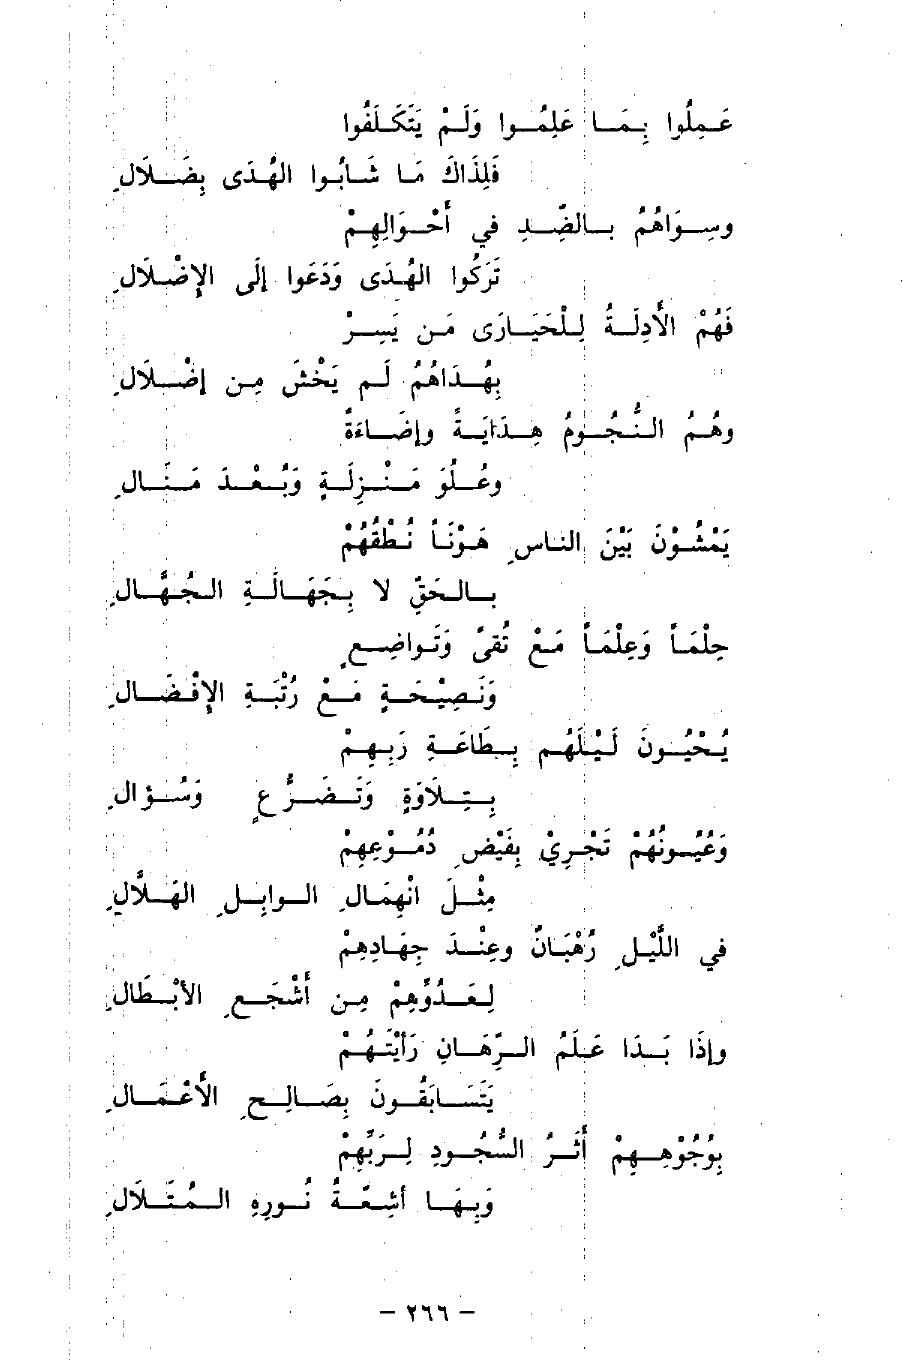 عَمِلُوا بِمَا عَلِمُوا وَلَمْ يَتَكَلَّفُوا
فَلِذَاكَ مَا شَابُوا الهُدَى بِضَلَالِ
وسِوَاهُمُ بالضِّدِ في أَحْوَالِهِمْ
تَرَكُوا الهُدَى وَدَعَوا إلَى الإِضْلَالِ
فَهُمْ الأَدِلَةُ لِلْحَيَارَى مَن يَسِرْ
بِهُدَاهُمُ لَم يَخْشَ مِن إضْلَالِ
وهُمُ النُّجُومُ هِدَايَةً وإضَاءَةً
وعُلُوَ مَنْزِلَةٍ وَبُعْدَ مَنَالِ
يَمْشُوْنَ بَيْنَ الناسِ هَوْنَاً نُطْقُهُمْ
بالحَقِّ لا بِجَهَالَةِ الجُهَّالِ
حِلْمَاً وَعِلْمَاً مَعْ تُقىً وَتَواضِعٍ
وَنَصِيْحَةٍ مَعْ رُتْبَةِ الإِفْضَالِ
يُحْيُونَ لَيْلَهُم بِطَاعَةِ رَبِهِمْ
بِتِلَاوَةٍ وَتَضَرُّعٍ وَسُؤالِ
وَعُيُونُهُمْ تَجْرِيْ بِفَيْضِ دُمُوْعِهِمْ
مِثْلَ انْهِمَالِ الوابِلِ الهَلَّالِ
في اللَّيْلِ رُهْبَانٌ وعِنْدَ جِهَادِهِمْ
لِعَدُوِّهِمْ مِن أَشْجَعِ الأبْطَالِ
وإذَا بَدَا عَلَمُ الرِّهَانِ رَأَيْتَهُمْ
يَتَسَابَقُونَ بِصَالِحِ الأَعْمَالِ
بِوُجُوْهِهِمْ أَثَرُ السُّجُودِ لِرَبِّهِمْ
وَبِهَا أشِعَّةُ نُورِهِ المُتَلَالِ
– ٢٦٦ –